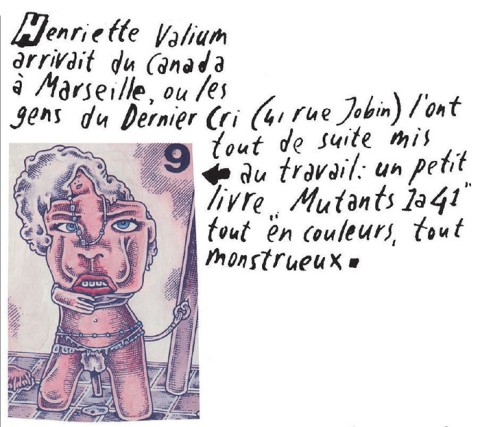 Henriette Valium
arrivait du Canada
à Marseille, ou les
gens du Dernier Cri (41 rue Jobin) l'ont
tout de suite mis
9
au travail: un petit
livre "Mutants 1a41"
tout en couleurs, tout
monstrueux.